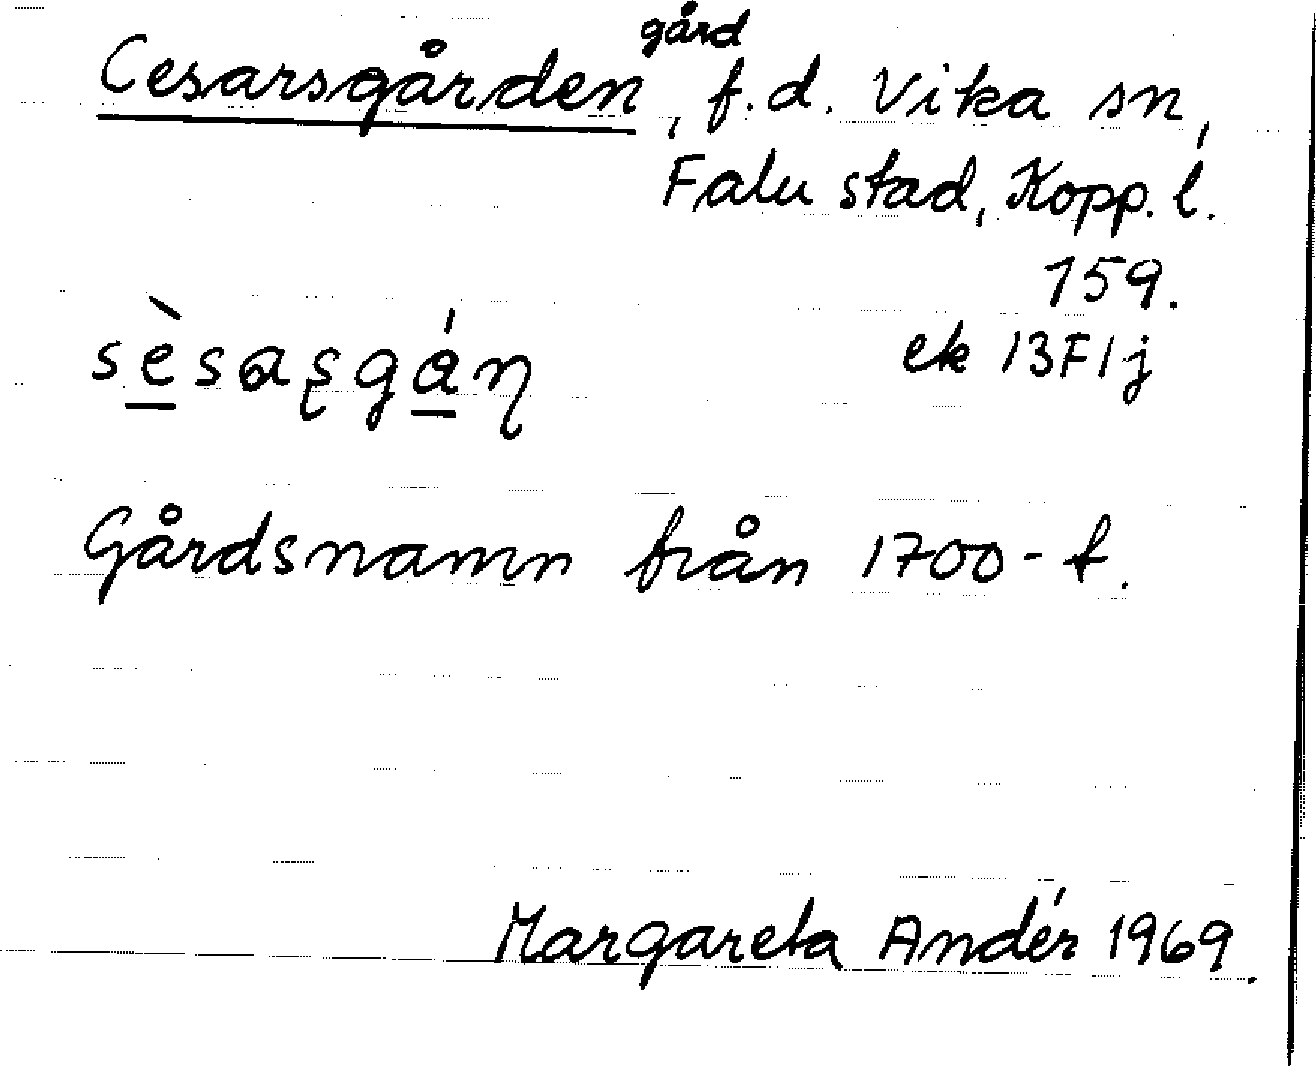 Cesarsgården gård, f.d. Vika sn,
Falu stad, Kopp. l.
159.
ek 13F1j
sèsaʂgáɳ
Gårdsnamn från 1700-t.
Margareta Andér 1969.